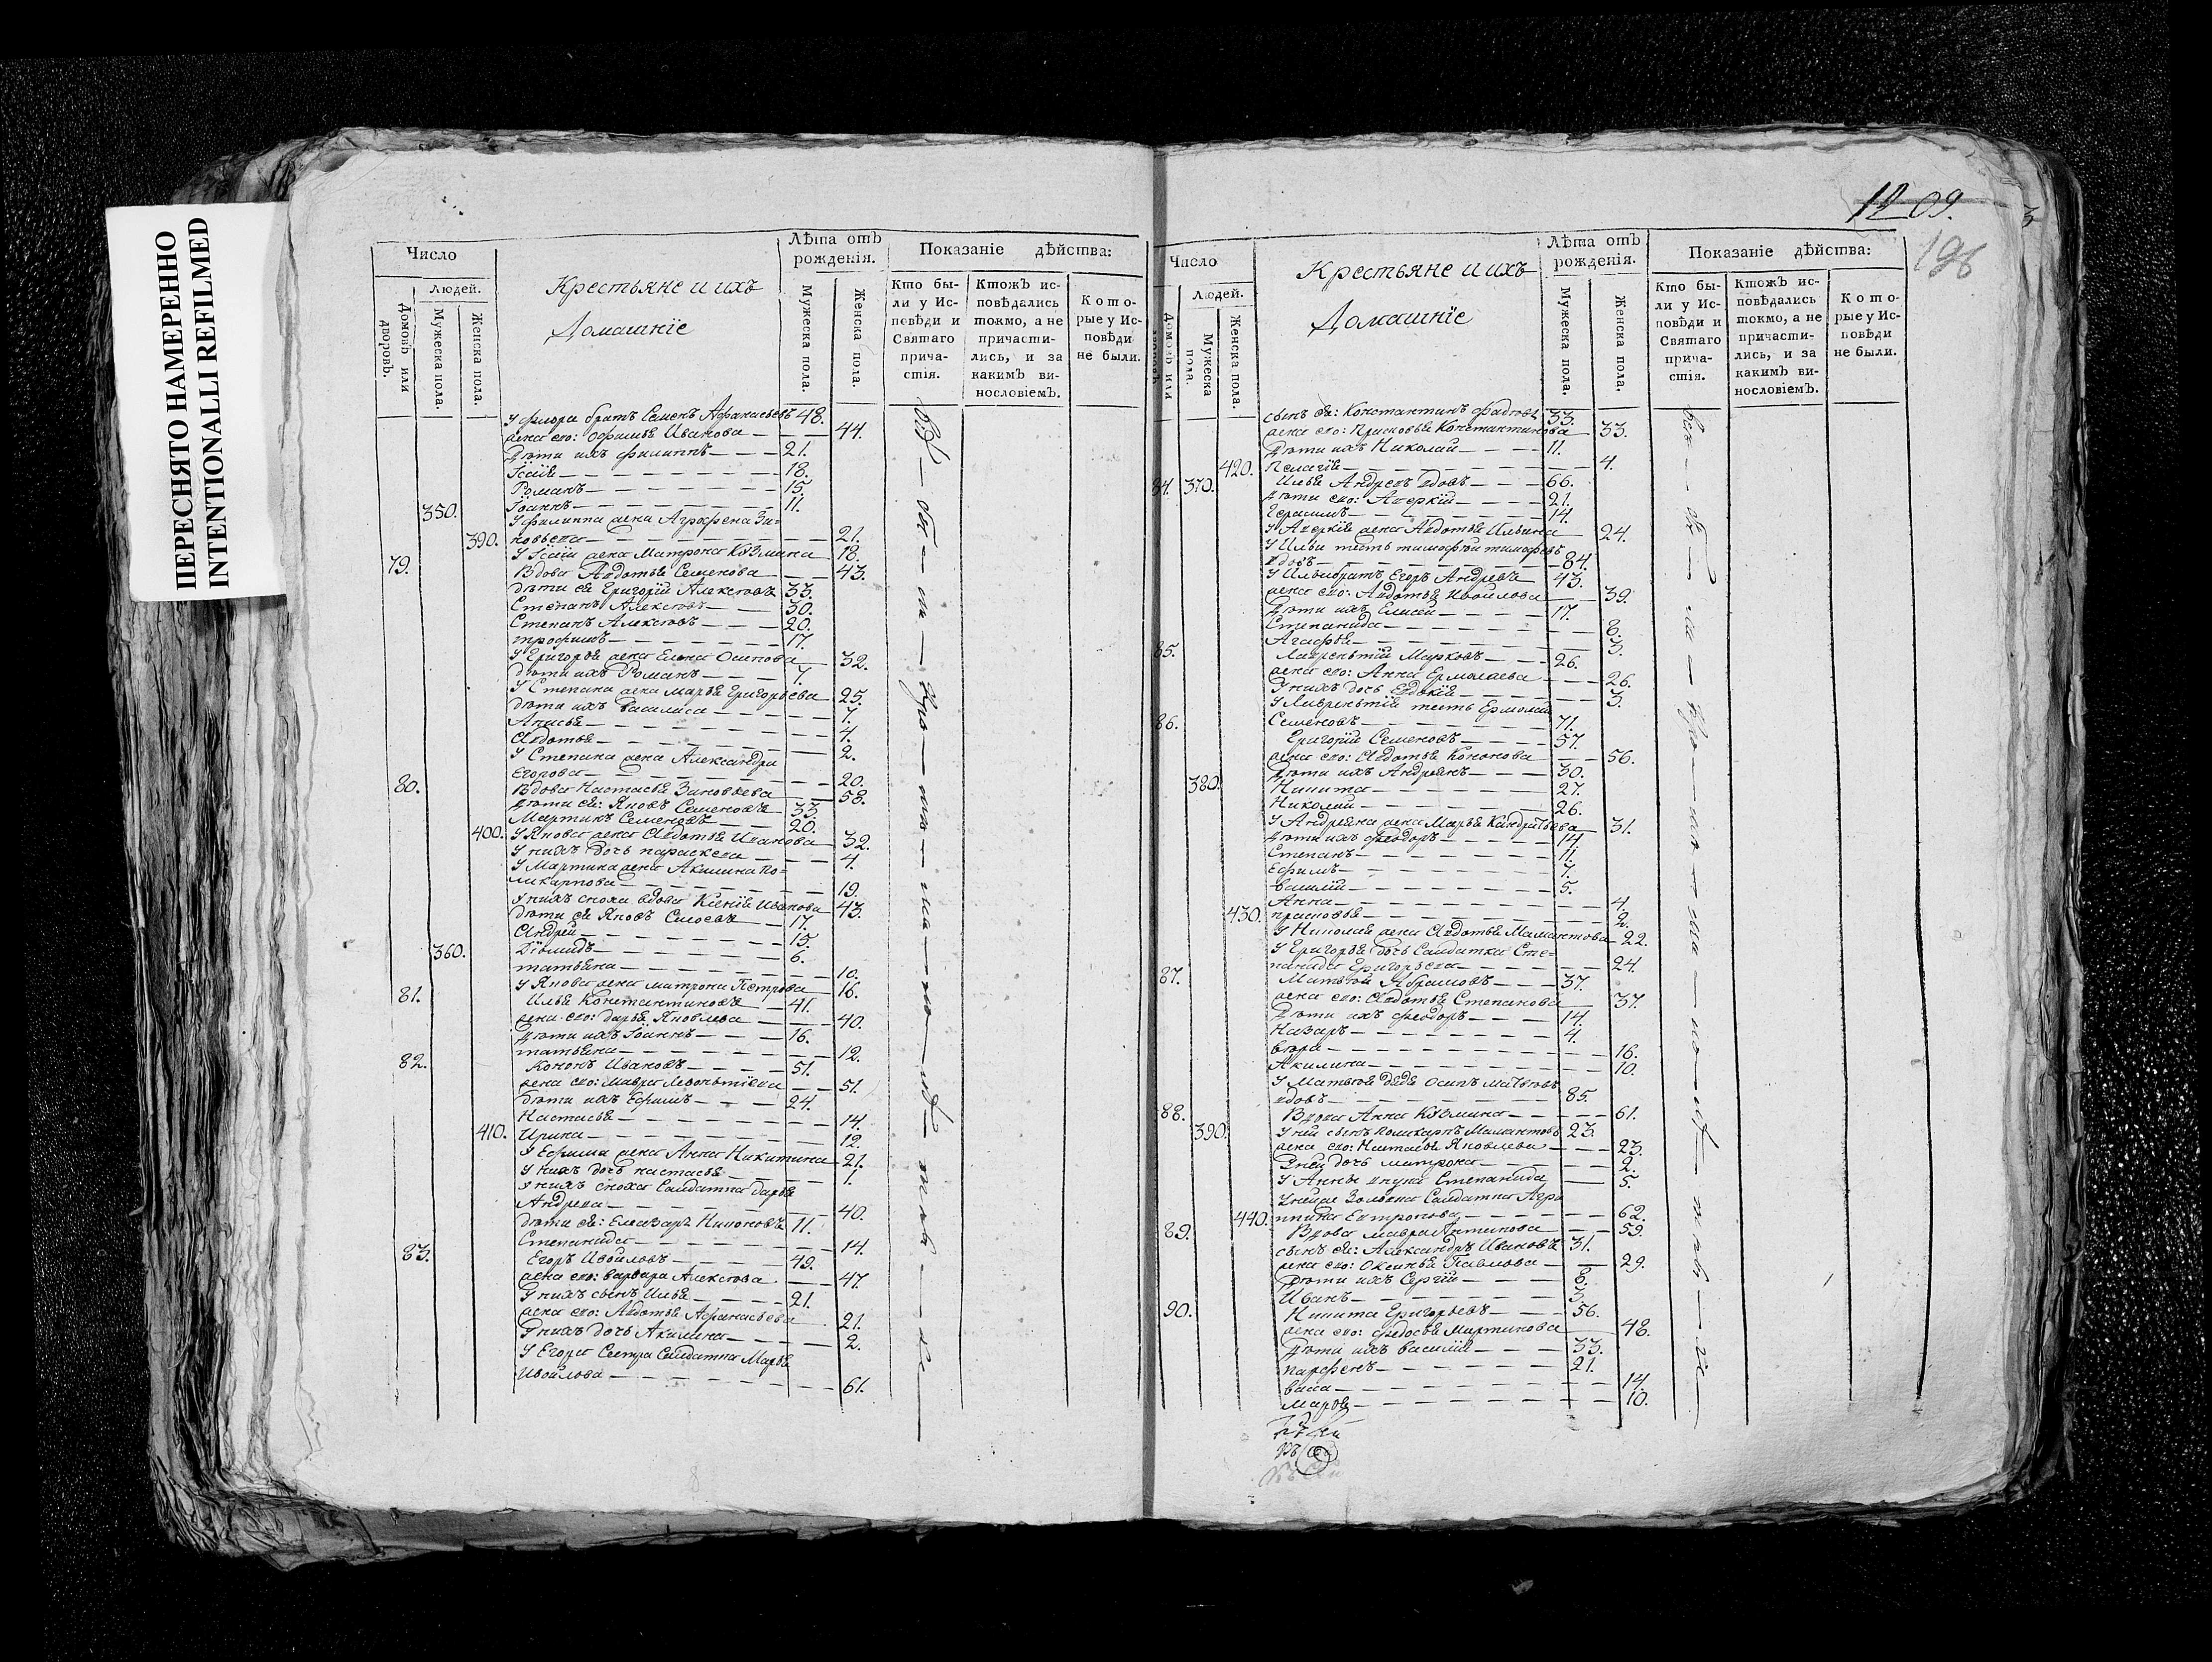 ПЕРЕСНЯТО НАМЕРЕННО
INTENTIONALLI REFILMED
Число
Людей.
Домовъ или дворовъ.
Мужеска пола.
Женска пола.
Крестьяне и ихъ
Домашнїе
Лѣта отъ рожденїя.
Мужеска пола.
Женска пола.
Показанїе дѣйства:
Кто были у Исповѣди и Святаго причастїя.
Ктожъ исповѣдались токмо, а не причастились, и за какимъ винословїемъ.
Которые у Исповѣди не были.
У Флора братъ Семенъ Афанасьевъ 48.
жена его: Офимья Иванова 44.
Дѣти ихъ Филиппъ 21.
Їсаїя 18.
Романъ 15.
350. Їоаннъ 11.
У Филиппа жена Агрофена Зи=
390. новьева 21.
У Їсаїи жена Матрона Козмина 18.
79. Вдова Авдотья Семенова 43.
дѣти ея Григорїй Алексѣевъ 33.
Степанъ Алексѣевъ 30.
Степанъ Алексѣевъ 20.
Трофимъ 17.
У Григорья жена Елена Осипова 32.
дѣти ихъ Романъ 7.
У Степана жена Марья Григорьева 25.
дѣти ихъ Василиса 7.
Анисья 4.
Авдотья 2.
У Степана жена Александра
Егорова 20.
80. Вдова Настасья Зиновьева 58.
Дѣти ея: Яковъ Семеновъ 33.
Мартинъ Семеновъ 20.
400. У Якова жена Авдотья Иванова 32.
У нихъ дочь Параскева 4.
У Мартина жена Акилина По=
ликарпова 19.
У нихъ сноха вдова Ксенїя Иванова 43.
Дѣти ея Яковъ 17.
Андрей 15.
360. Дїомидъ 6.
Татьяна 10.
У Якова жена Матрона Петрова 16.
81. Илья Константиновъ 41.
жена его: Дарья Яковлева 40.
Дѣти ихъ Їоаннъ 16.
Татьяна 12.
82. Кононъ Ивановъ 51.
жена его: Мавра Леонтїева 51.
Дѣти ихъ Ефимъ 24.
Настасья 14.
410. Ирина 12.
У Ефима жена Анна Никитина 21.
У нихъ дочь Настасья 1.
У нихъ сноха Салдатка Дарья
Андреева 40.
Дѣти ея: Елеазаръ 11.
Степанида 14.
83. Егоръ Ивойловъ 49.
жена его: Варвара Алексѣева 47.
У нихъ сынъ Илья 21.
жена его: Авдотья Афанасьева 21.
У нихъ дочь Акилина 2.
У Егора Сестра Салдатка Марья
Ивойлова 61.
1209.
196
Число
Людей.
Домовъ или дворовъ.
Мужеска пола.
Женска пола.
Крестьяне и ихъ
Домашнїе
Лѣта отъ рожденїя.
Мужеска пола.
Женска пола.
Показанїе дѣйства:
Кто были у Исповѣди и Святаго причастїя.
Ктожъ исповѣдались токмо, а не причастились, и за какимъ винословїемъ.
Которые у Исповѣди не были.
сынъ ея: Константинъ 33.
жена его: Прасковья Константинова 33.
Дѣти ихъ Николай 11.
420. Пелагїя 4.
84. 370. Илья Андреевъ вдовъ 66.
Дѣти его: Аверкїй 21.
Герасимъ 14.
У Аверкїя жена Авдотья Ильина 24.
У Ильи тесть Тимофѣй Тимофѣевъ
вдовъ 84.
У Ильи братъ Егоръ Андреевъ 43.
жена его: Авдотья Ивойлова 39.
Дѣти ихъ Елисей 17.
Степанида 8.
Агафья 3.
85. Лаврентїй Марковъ 26.
жена его: Анна Ермолаева 26.
У нихъ дочь Евдокїя 3.
У Лаврентїя тесть Ермолай
Семеновъ 71.
86. Григорїй Семеновъ 57.
жена его: Авдотья Кононова 56.
Дѣти ихъ Андреянъ 30.
380. Никита 27.
Николай 26.
У Андреяна жена Марья Кандратьева 31.
Дѣти ихъ Феодоръ 14.
Степанъ 11.
Ефимъ 7.
Василїй 5.
Анна 4.
430. Прасковья 2.
У Николая жена Авдотья Мамантова 22.
У Григорья дочь Салдатка Сте=
панида Григорьева 24.
87. Матвѣй Абрамовъ 37.
жена его: Авдотья Степанова 37.
Дѣти ихъ Феодоръ 14.
Назаръ 4.
Вѣра 16.
Акилина 10.
У Матвѣя дядя Осипъ Матвѣевъ
вдовъ 85.
88. Вдова Анна Козмина 61.
390. У ней сынъ Поликарпъ Мамантовъ 23.
жена его: Настасья Яковлева 23.
У ней дочь Матрона 2.
У Анны внука Степанида 5.
У нейже золовка Салдатка Агро
440. Евтропова 62.
89. Вдова Мавра Антипова 59.
сынъ ея: Александръ Ивановъ 31.
жена его: Оксинья Павлова 29.
Дѣти ихъ Сергїй 8.
Иванъ 3.
90. Никита Григорьевъ 56.
жена его: Федосья Мартинова 48.
Дѣти ихъ Василїй 33.
Парфенъ 21.
Васа 14.
Марфа 10.